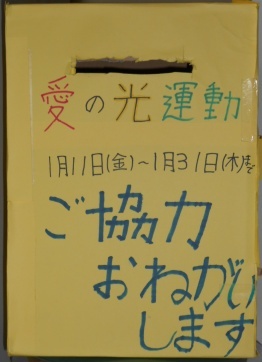 愛の光運動
1月11日(金)～1月31日(木)まで
ご協力
おねがい
します